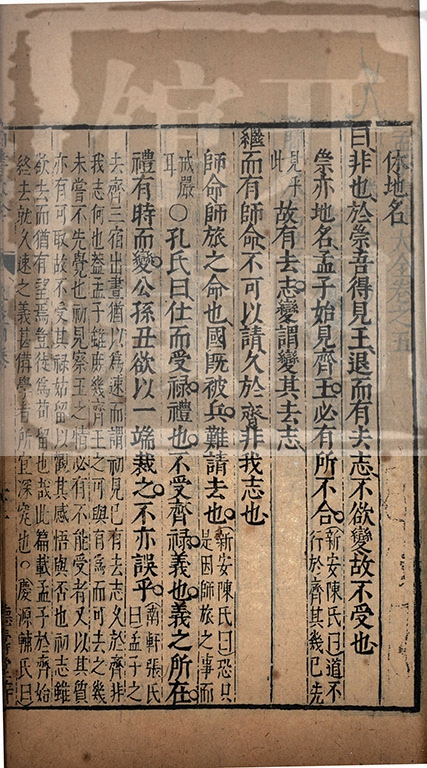 休地名
曰非也於崇吾得見王退而有去志不欲變故不受也
崇亦地名孟子始見齊王必有所不合
新安陳氏曰道不
行於齊其幾已先
見乎
此
故有去志變謂變其去志
繼而有師命不可以請久於齊非我志也
師命師旅之命也國既被兵難請去也
新安陳氏曰恐只
是因師旅之事而
戒嚴
耳
○孔氏曰仕而受禄禮也不受齊禄義也義之所在
禮有時而變公孫丑欲以一端裁之不亦誤乎
南軒張氏
曰孟子之
去齊三宿出晝猶以爲速而謂初見已有去志久於齊非
我志何也蓋孟子雖庶幾齊王之可與有爲而可去之幾
未嘗不先覺也初見察王之情必有不能受者又以其質
亦有可取故不受其禄姑留以觀其感悟與否也初志雖
欲去而猶有望焉豈徒爲苟留也哉此篇載孟子於齊始
終去就久速之義甚備學者所宜深究也○慶源輔氏曰